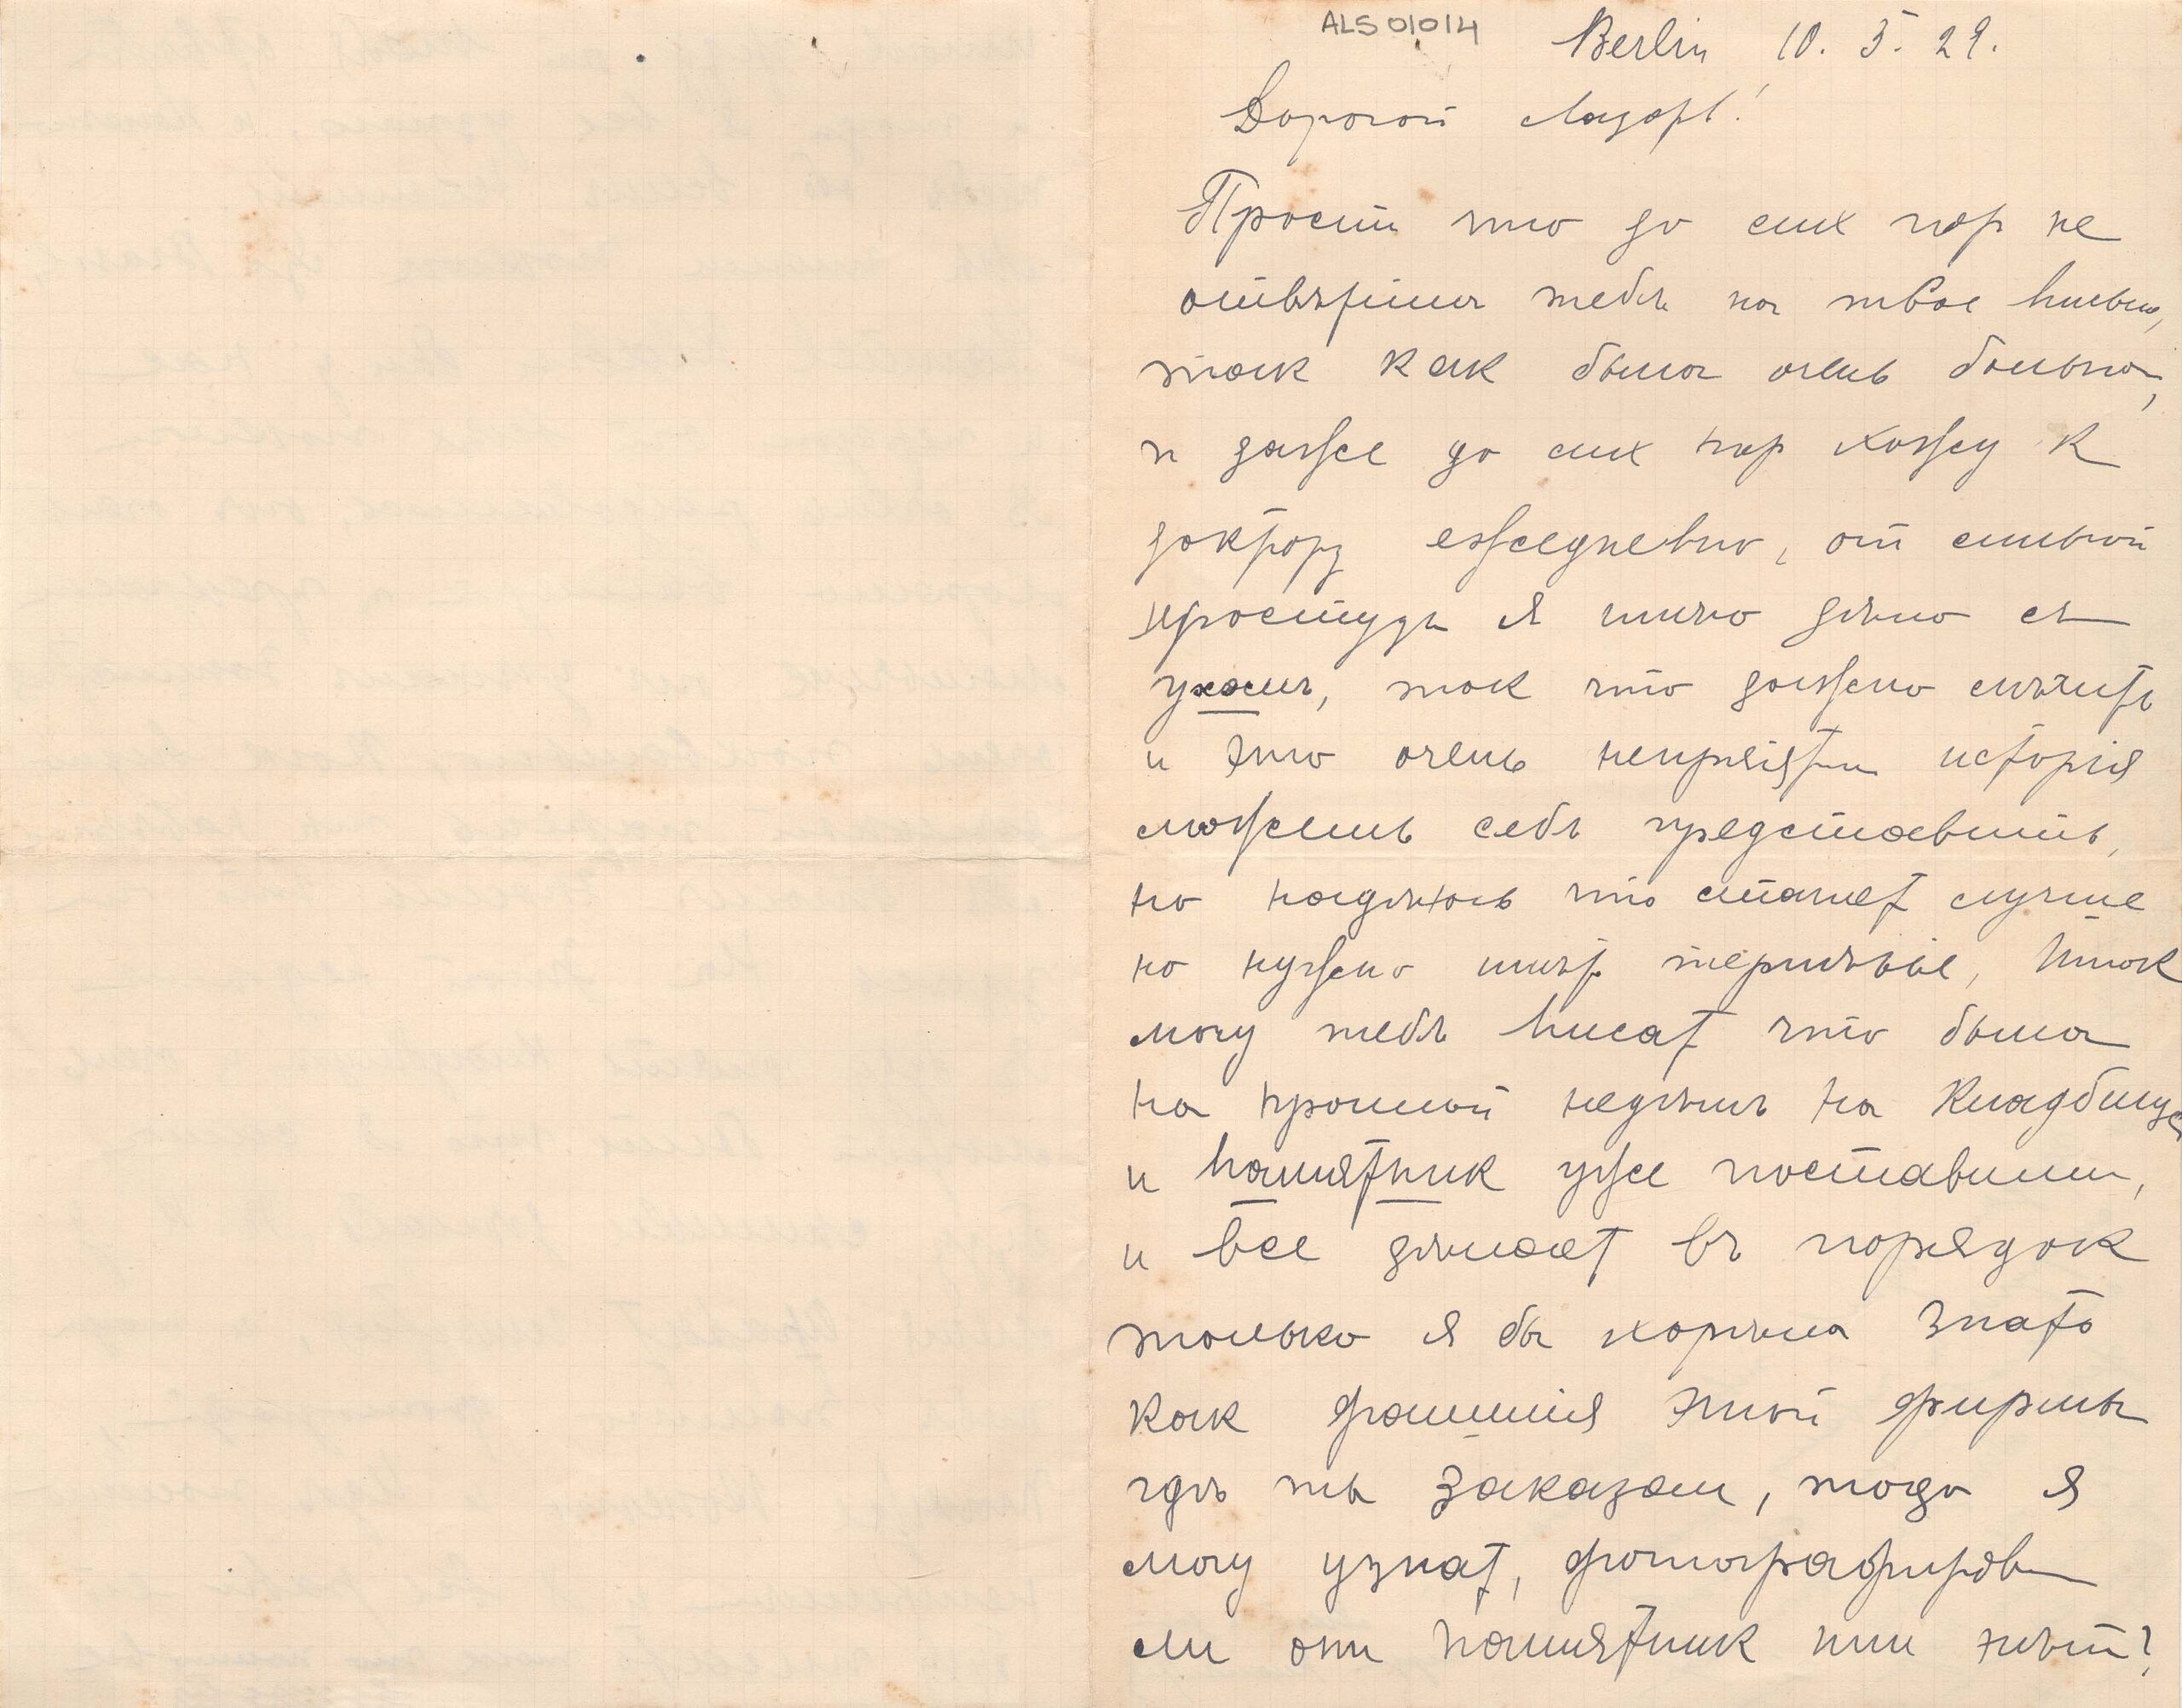 ALS 01014
Berlin 10. 5. 29.
Дорогой Лазарь!
Прости что до сих пор не
отвѣтила тебѣ на твое письмо,
так как была очень больна,
и даже до сих пор хожу к
доктору ежедневно, от сильной
простуды я имѣю дѣло съ
ухомъ, так что должно лѣчить
и это очень непріятн исторія
можешь себѣ представить,
но надѣюсь что станет лучше
но нужно имѣт терпѣніе, Итак
могу тебѣ писат что была
на прошлой недѣлѣ на Кладбище
и памятник уже поставили,
и все дѣлают въ порядок
только я бы хотѣла знать
как фамилія этой фирмы
гдѣ ты заказал, тогда я
могу узнат, фотографиров
ли они памятник или нѣт?